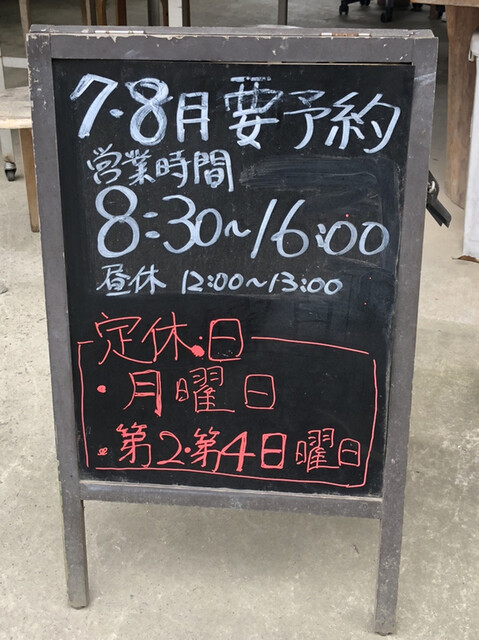 7・8月要予約
営業時間
8:30~16:00
昼休 12:00~13:00
定休日
・月曜日
・第2・第4日曜日